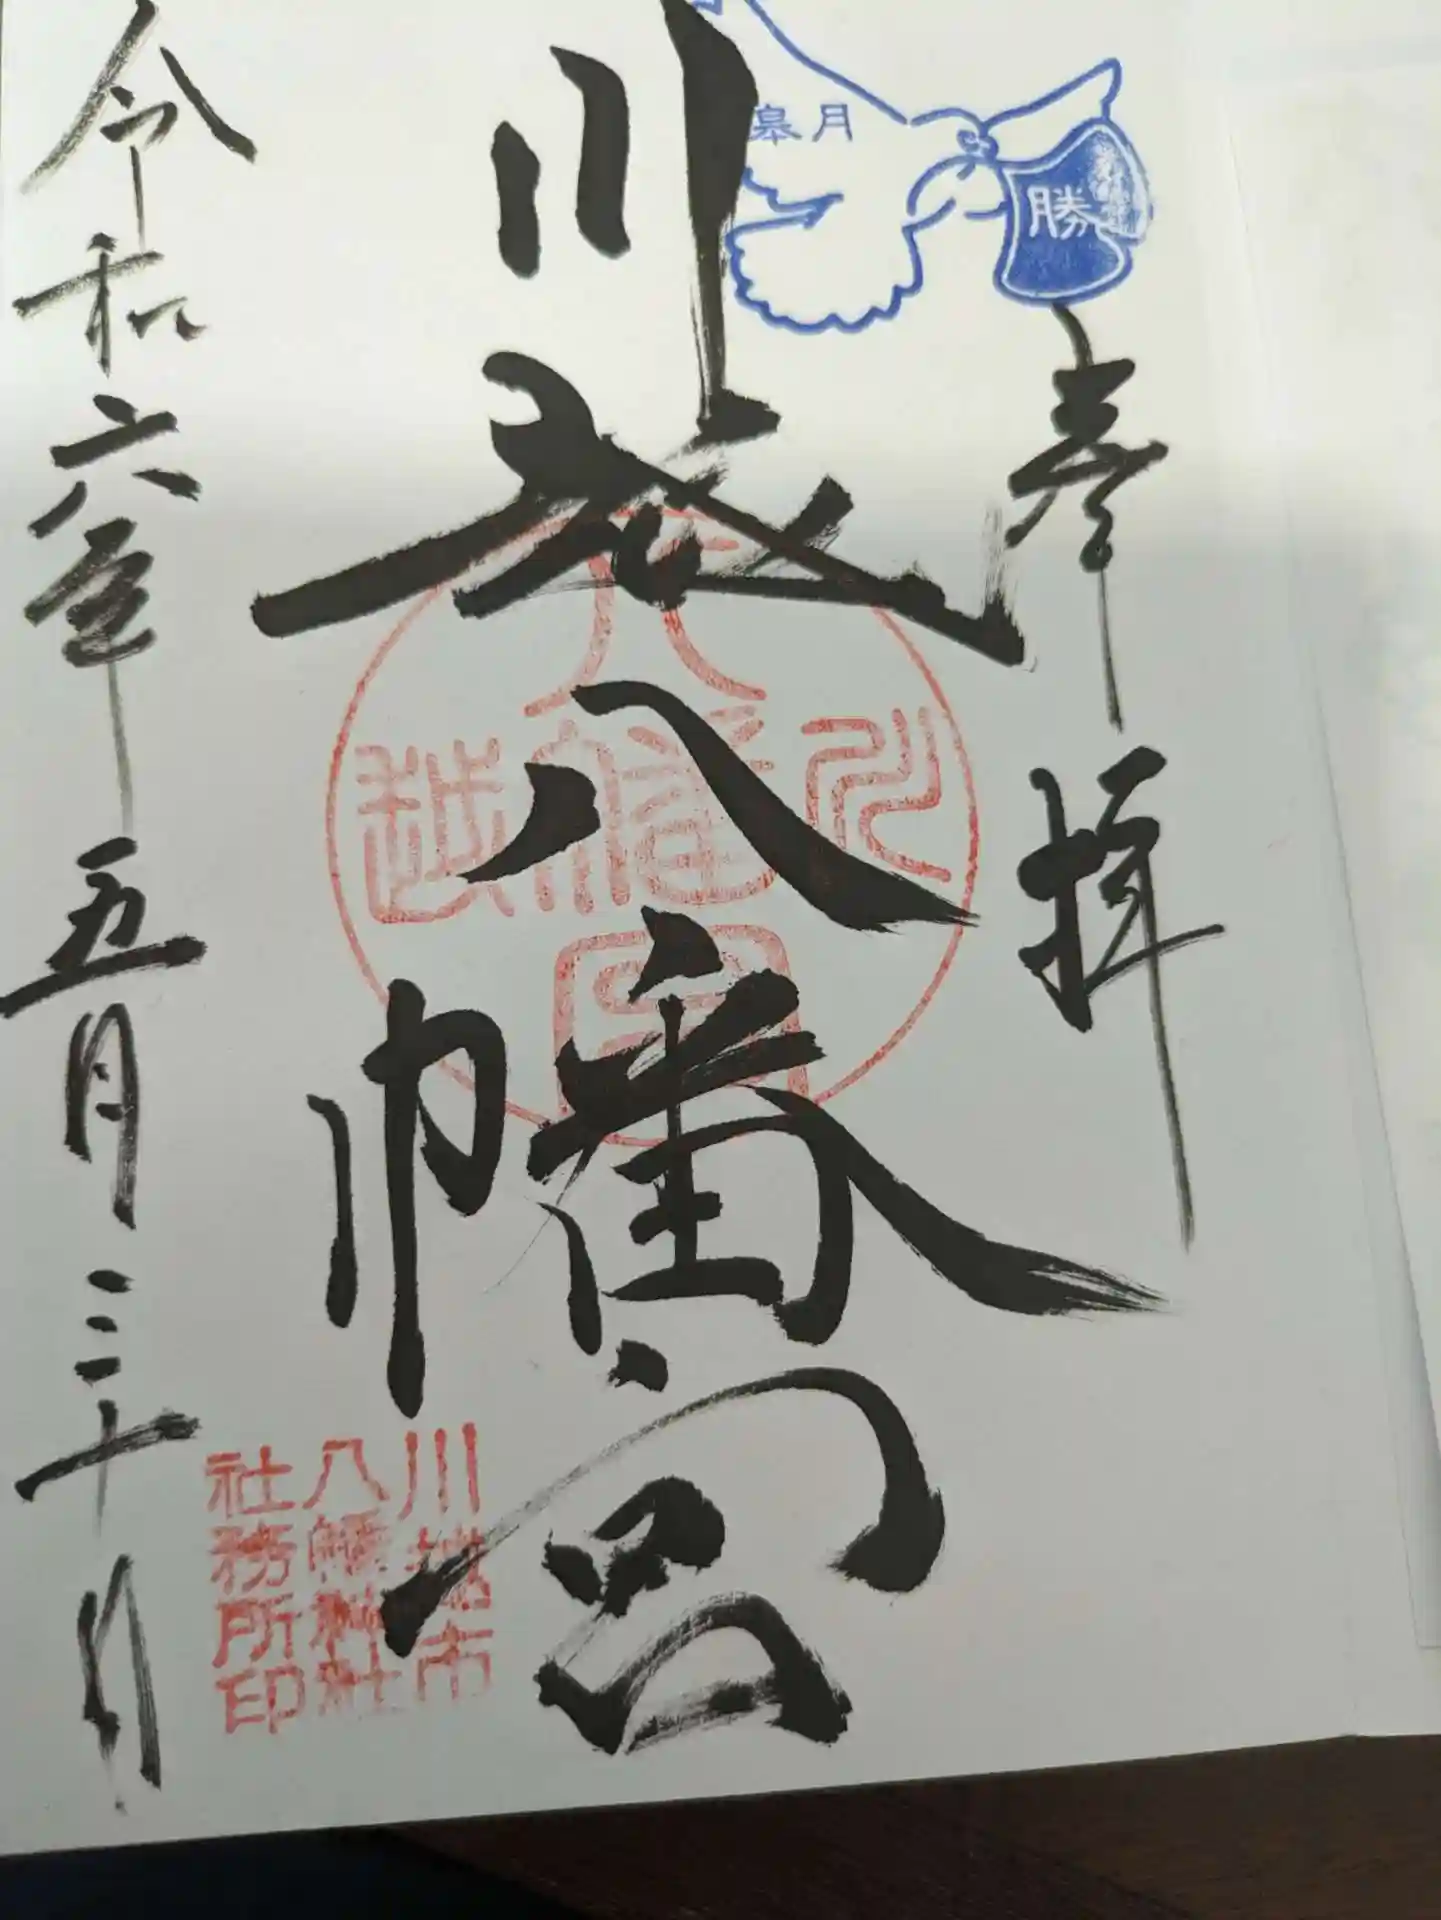 皐月
勝
奉拝
川越八幡宮
川越
八幡宮
川越市
八幡神社
社務所印
令和六年五月三十日